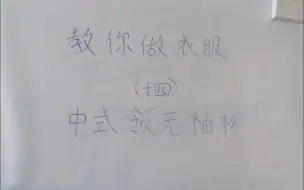 教你做衣服
(十四)
中式领无袖衫